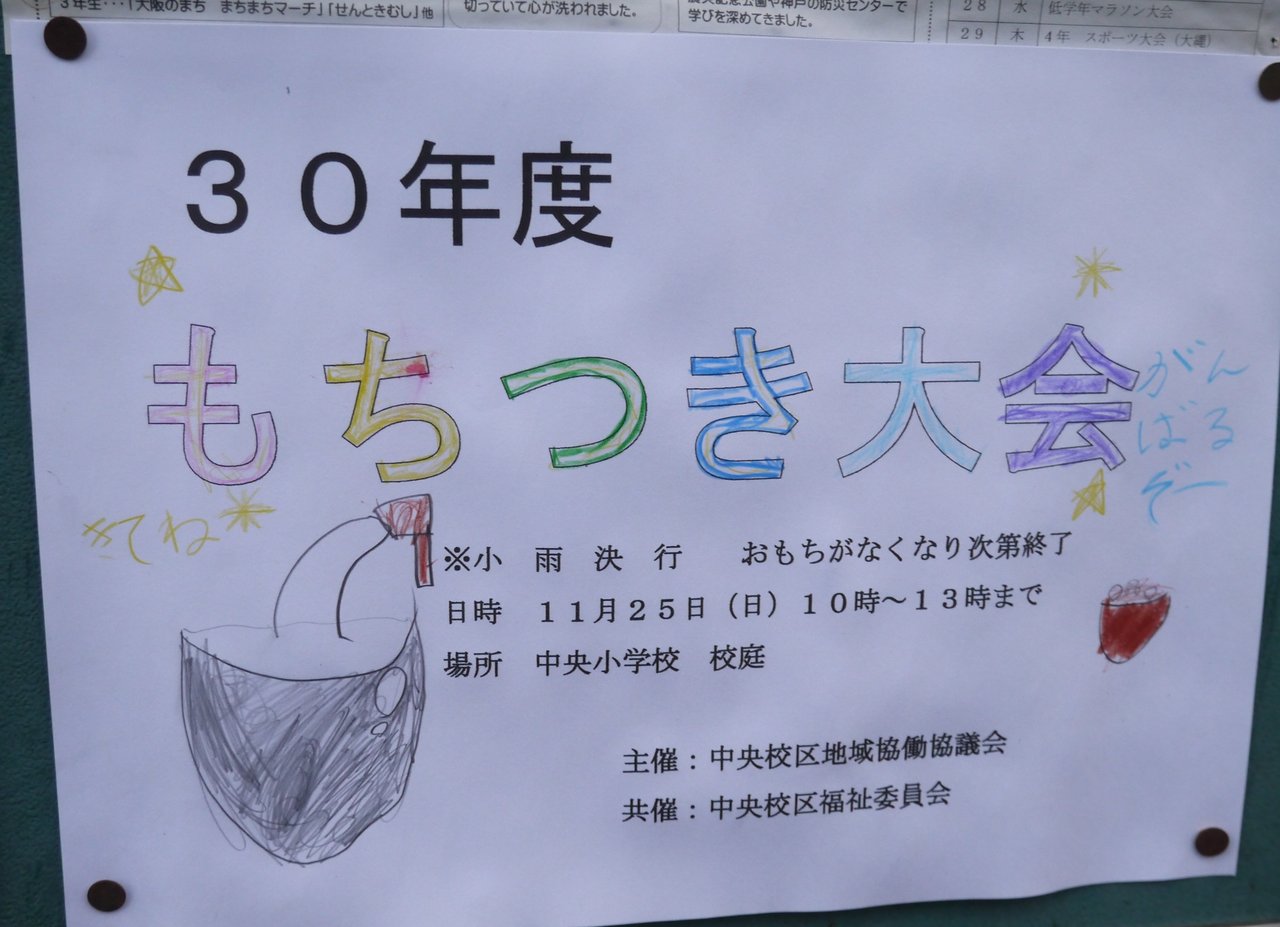 3年生･･･｢大阪のまち まちまちマーチ｣｢せんときむし｣他
切っていて心が洗われました。
震災記念公園や神戸の防災センターで
学びを深めてきました。
28 水 低学年マラソン大会
29 木 4年 スポーツ大会（大縄）
３０年度
もちつき大会
がん
ばる
ぞー
きてね
※小 雨 決 行 おもちがなくなり次第終了
日時 １１月２５日（日）１０時～１３時まで
場所 中央小学校 校庭
主催：中央校区地域協働協議会
共催：中央校区福祉委員会